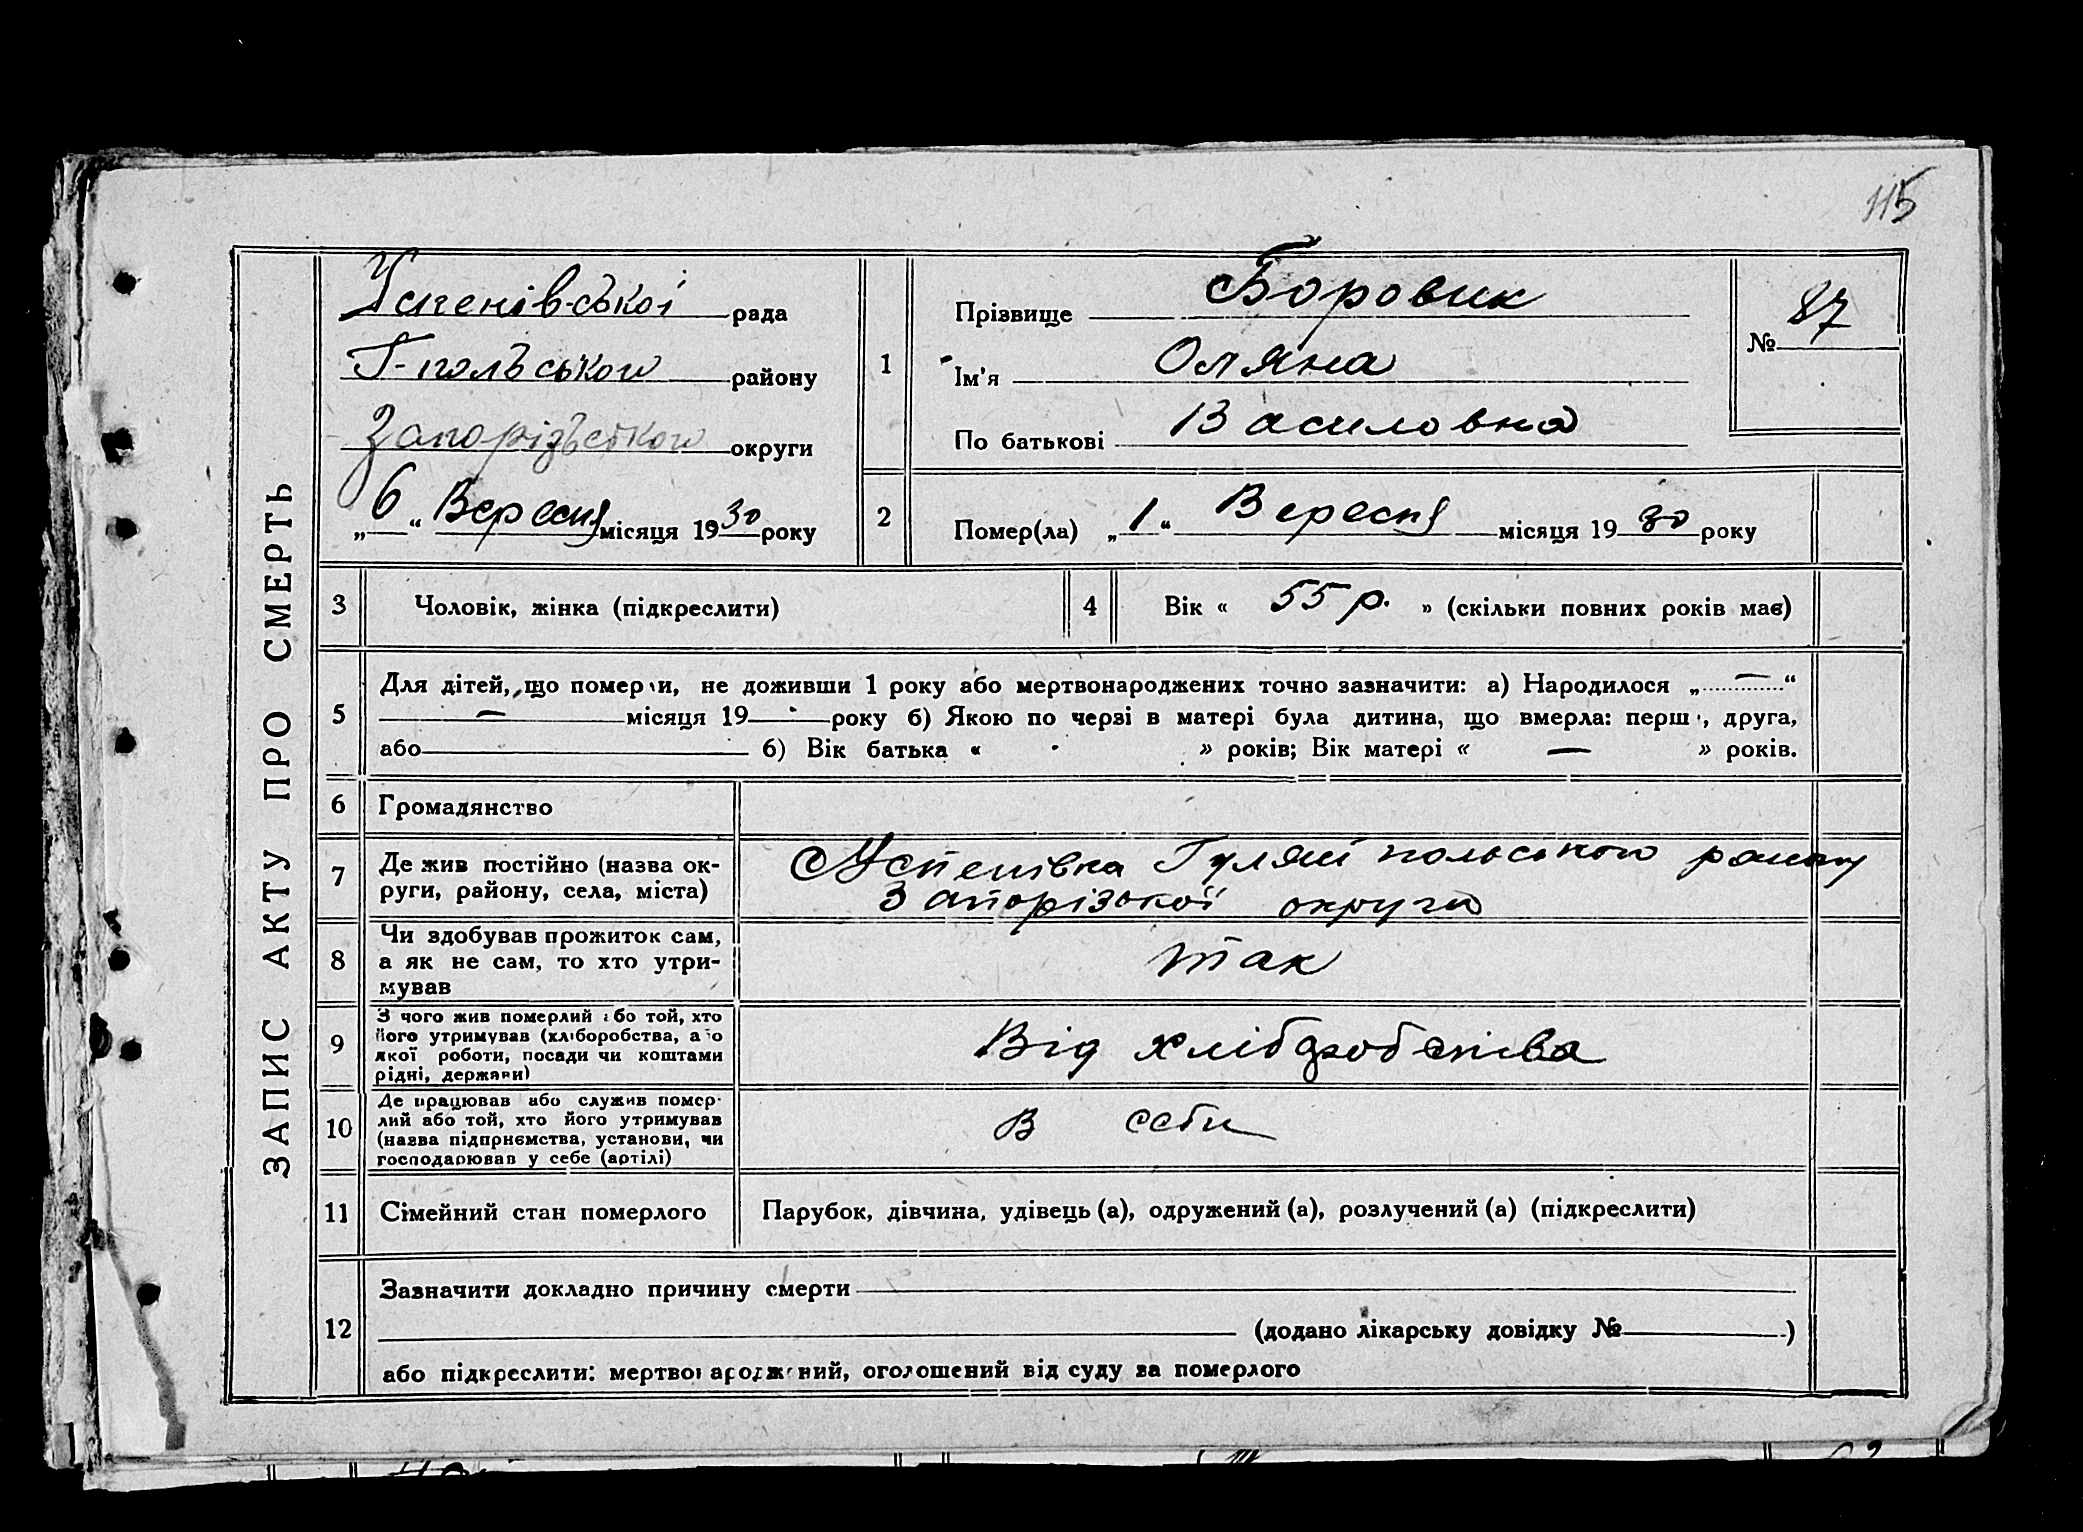 115
ЗАПИС АКТУ ПРО СМЕРТЬ
Успенівської рада
Г-польського району
Запорізького округи
„6“ Вересня місяця 1930 року
1
Прізвище Боровик
Ім'я Оляна
По батькові Василовна
№ 87
2
Помер(ла) „1“ Вересня місяця 1930 року
3 Чоловік, жінка (підкреслити)
4 Вік « 55 р. » (скільки повних років має)
5
Для дітей, що померли, не доживши 1 року або мертвонароджених точно зазначити: а) Народилося „—“
— місяця 19 року б) Якою по черзі в матері була дитина, що вмерла: перша, друга,
або 6) Вік батька « » років; Вік матері « — » років.
6 Громадянство
7
Де жив постійно (назва ок-
руги, району, села, міста)
Успенівка Гуляй польського району
Запорізької округи
8
Чи здобував прожиток сам,
а як не сам, то хто утри-
мував
так
9
З чого жив померлий або той, хто
його утримував (хліборобства, або
якої роботи, посади чи коштами
рідні, держави)
Від хліборобства
10
Де працював або служив помер-
лий або той, хто його утримував
(назва підприємства, установи, чи
господарював у себе (артілі)
В себи
11 Сімейний стан померлого
Парубок, дівчина, удівець (а), одружений (а), розлучений (а) (підкреслити)
12
Зазначити докладно причину смерти
(додано лікарську довідку № )
або підкреслити: мертвонароджений, оголошений від суду за померлого